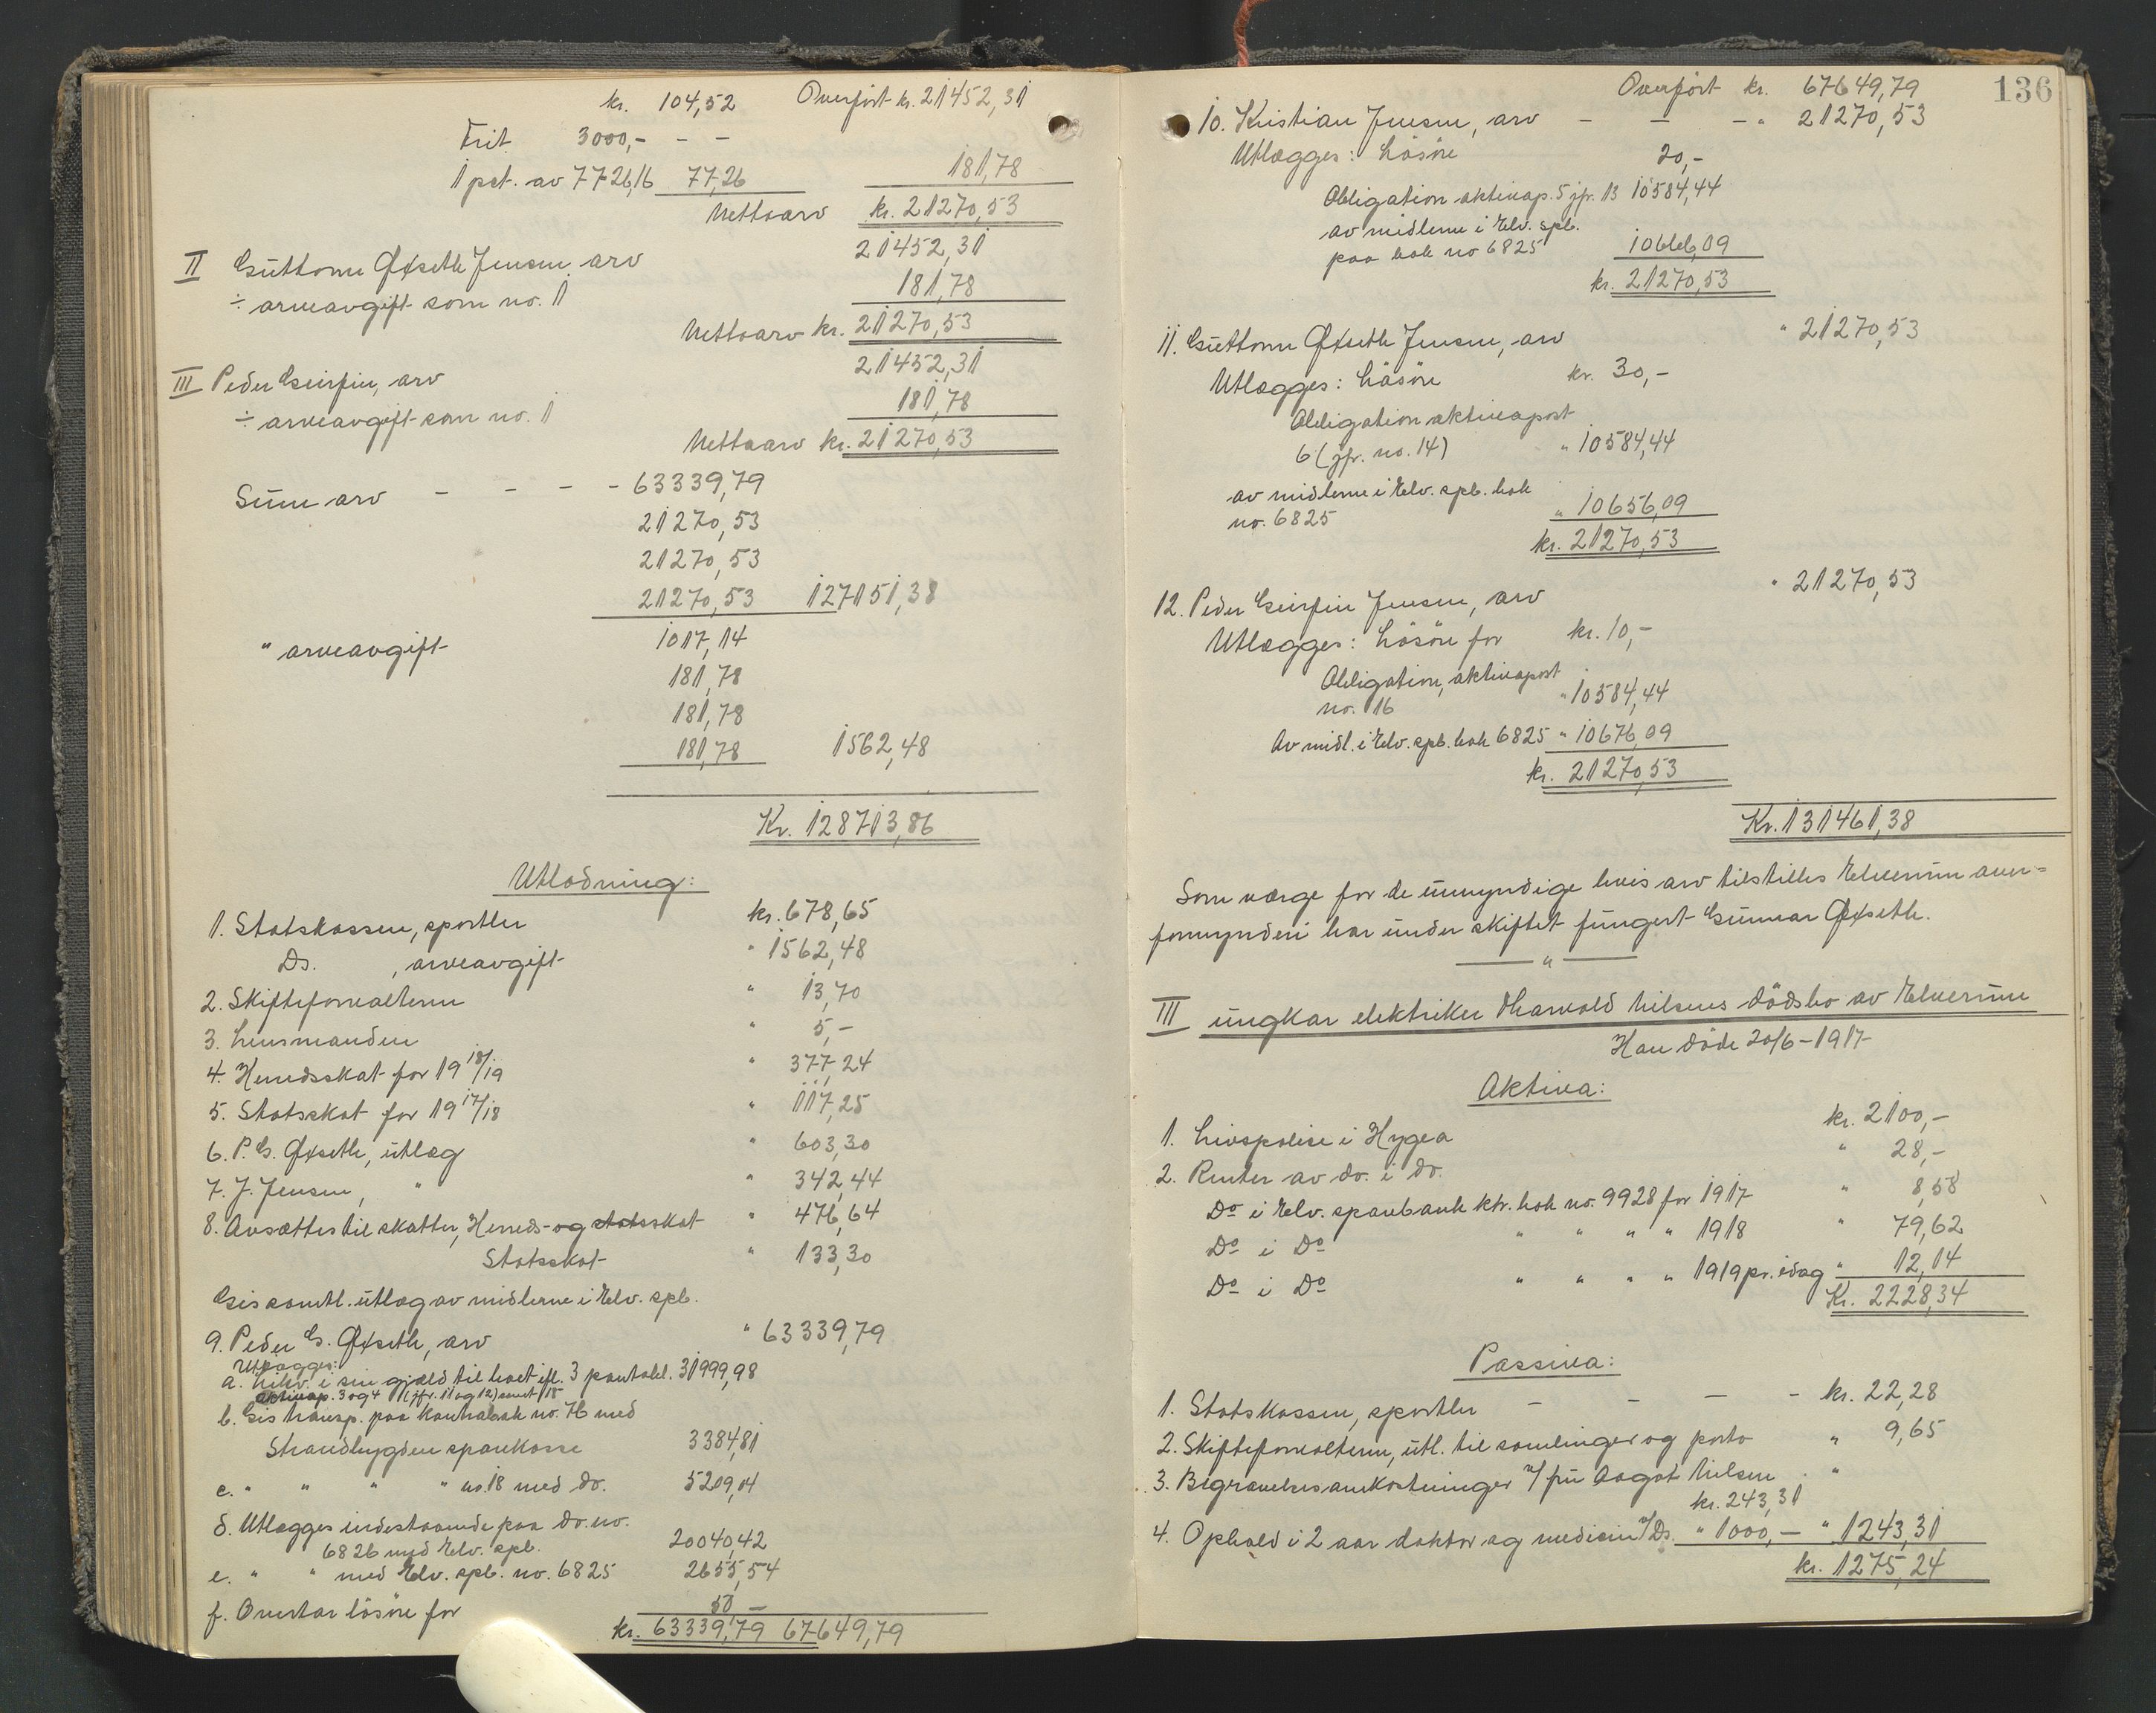 kr. 104,52 Overført kr. 21452,31
Frit 3000,- - -
1 pct. av 7726,16 77,26 181,78
Nettoarv kr. 21270,53
II Guttorm Øxseth Jensen, arv 21452,31
÷ arveavgift som no. 1 181,78
Nettoarv kr. 21270,53
III Peder Geirfin, arv 21452,31
÷ arveavgift som no. 1 181,78
Nettoarv kr. 21270,53
Sum arv - - - - 63339,79
21270,53
21270,53
21270,53 127151,38
" arveavgift 1017,14
181,78
181,78
181,78 1562,48
Kr. 128713,86
Utlodning:
1. Statskassen, sportler kr. 678,65
Do. , arveavgift " 1562,48
2. Skifteforvalteren " 13,70
3. Lensmanden " 5,-
4. Herredsskat for 1918/19 " 377,24
5. Statsskat for 1917/18 " 117,25
6. P. G. Øxseth, utlæg " 603,30
7. J. Jensen, " " 342,44
8. Avsættes til skatter, Herreds- og statsskat " 476,64
Statsskat " 133,30
Gis samtl. utlæg av midlerne i Elv. spb.
9. Peder G. Øxseth, arv " 63339,79
Utlægges:
a. Likv. i sin gjæld til boet ifl. 3 pantobl. 31999,98
aktivap. 3 og 4 (jfr. 11 og 12) samt 15
b. Gis transp. paa kontrabok no. 76 med
Strandbygden sparekasse 3384,81
c. " " " " no. 18 med do. 5209,04
d. Utlægges indestaaende paa do. no.
6826 med Elv. spb. 20040,42
e. " " med Elv. spb. no. 6825 2655,54
f. Overtar løsøre for 50 -
kr. 63339,79 67649,79
136
Overført kr. 67649,79
10. Kristian Jensen, arv - - - " 21270,53
Utlægges: Løsøre 20,-
Obligation aktivap. 5 jfr. 13 10584,44
av midlerne i Elv. spb.
paa bok no 6825 10666,09
kr. 21270,53
11. Guttorm Øxseth Jensen, arv " 21270,53
Utlægges: Løsøre kr. 30,-
Obligation aktivapost
6 (jfr. no. 14) " 10584,44
av midlerne i Elv. spb. bok
no. 6825 " 10656,09
kr. 21270,53
12. Peder Geirfin Jensen, arv " 21270,53
Utlægges: Løsøre for kr. 10,-
Obligation, aktivapost
no. 16 " 10584,44
Av midl. i Elv. spb. bok 6825 " 10676,09
kr. 21270,53
Kr. 131461,38
Som værge for de umyndige hvis arv tilstilles Elverum over=
formynderi har under skiftet fungert Gunnar Øxseth.
"
III ungkar elektriker Tharvald Nilsens dødsbo av Elverum
Han døde 20/6-1917
Aktiva:
1. Livspolise i Hygea kr. 2100,-
2. Renter av do. i do. " 28,-
Do i Elv. sparebank ktr. bok no. 9928 for 1917 " 8,58
Do i Do " " " " 1918 " 79,62
Do i Do " " " " 1919 pr. idag " 12,14
Kr. 2228,34
Passiva:
1. Statskassen, sportler - - - - kr. 22,28
2. Skifteforvalteren, utl. til samlinger og porto " 9,65
3. Begravelsesomkostninger v/ fru Aagot Nilsen . "
kr. 243,31
4. Ophold i 2 aar doktor og medicin v/Do. " 1000,- " 1243,31
kr. 1275,24